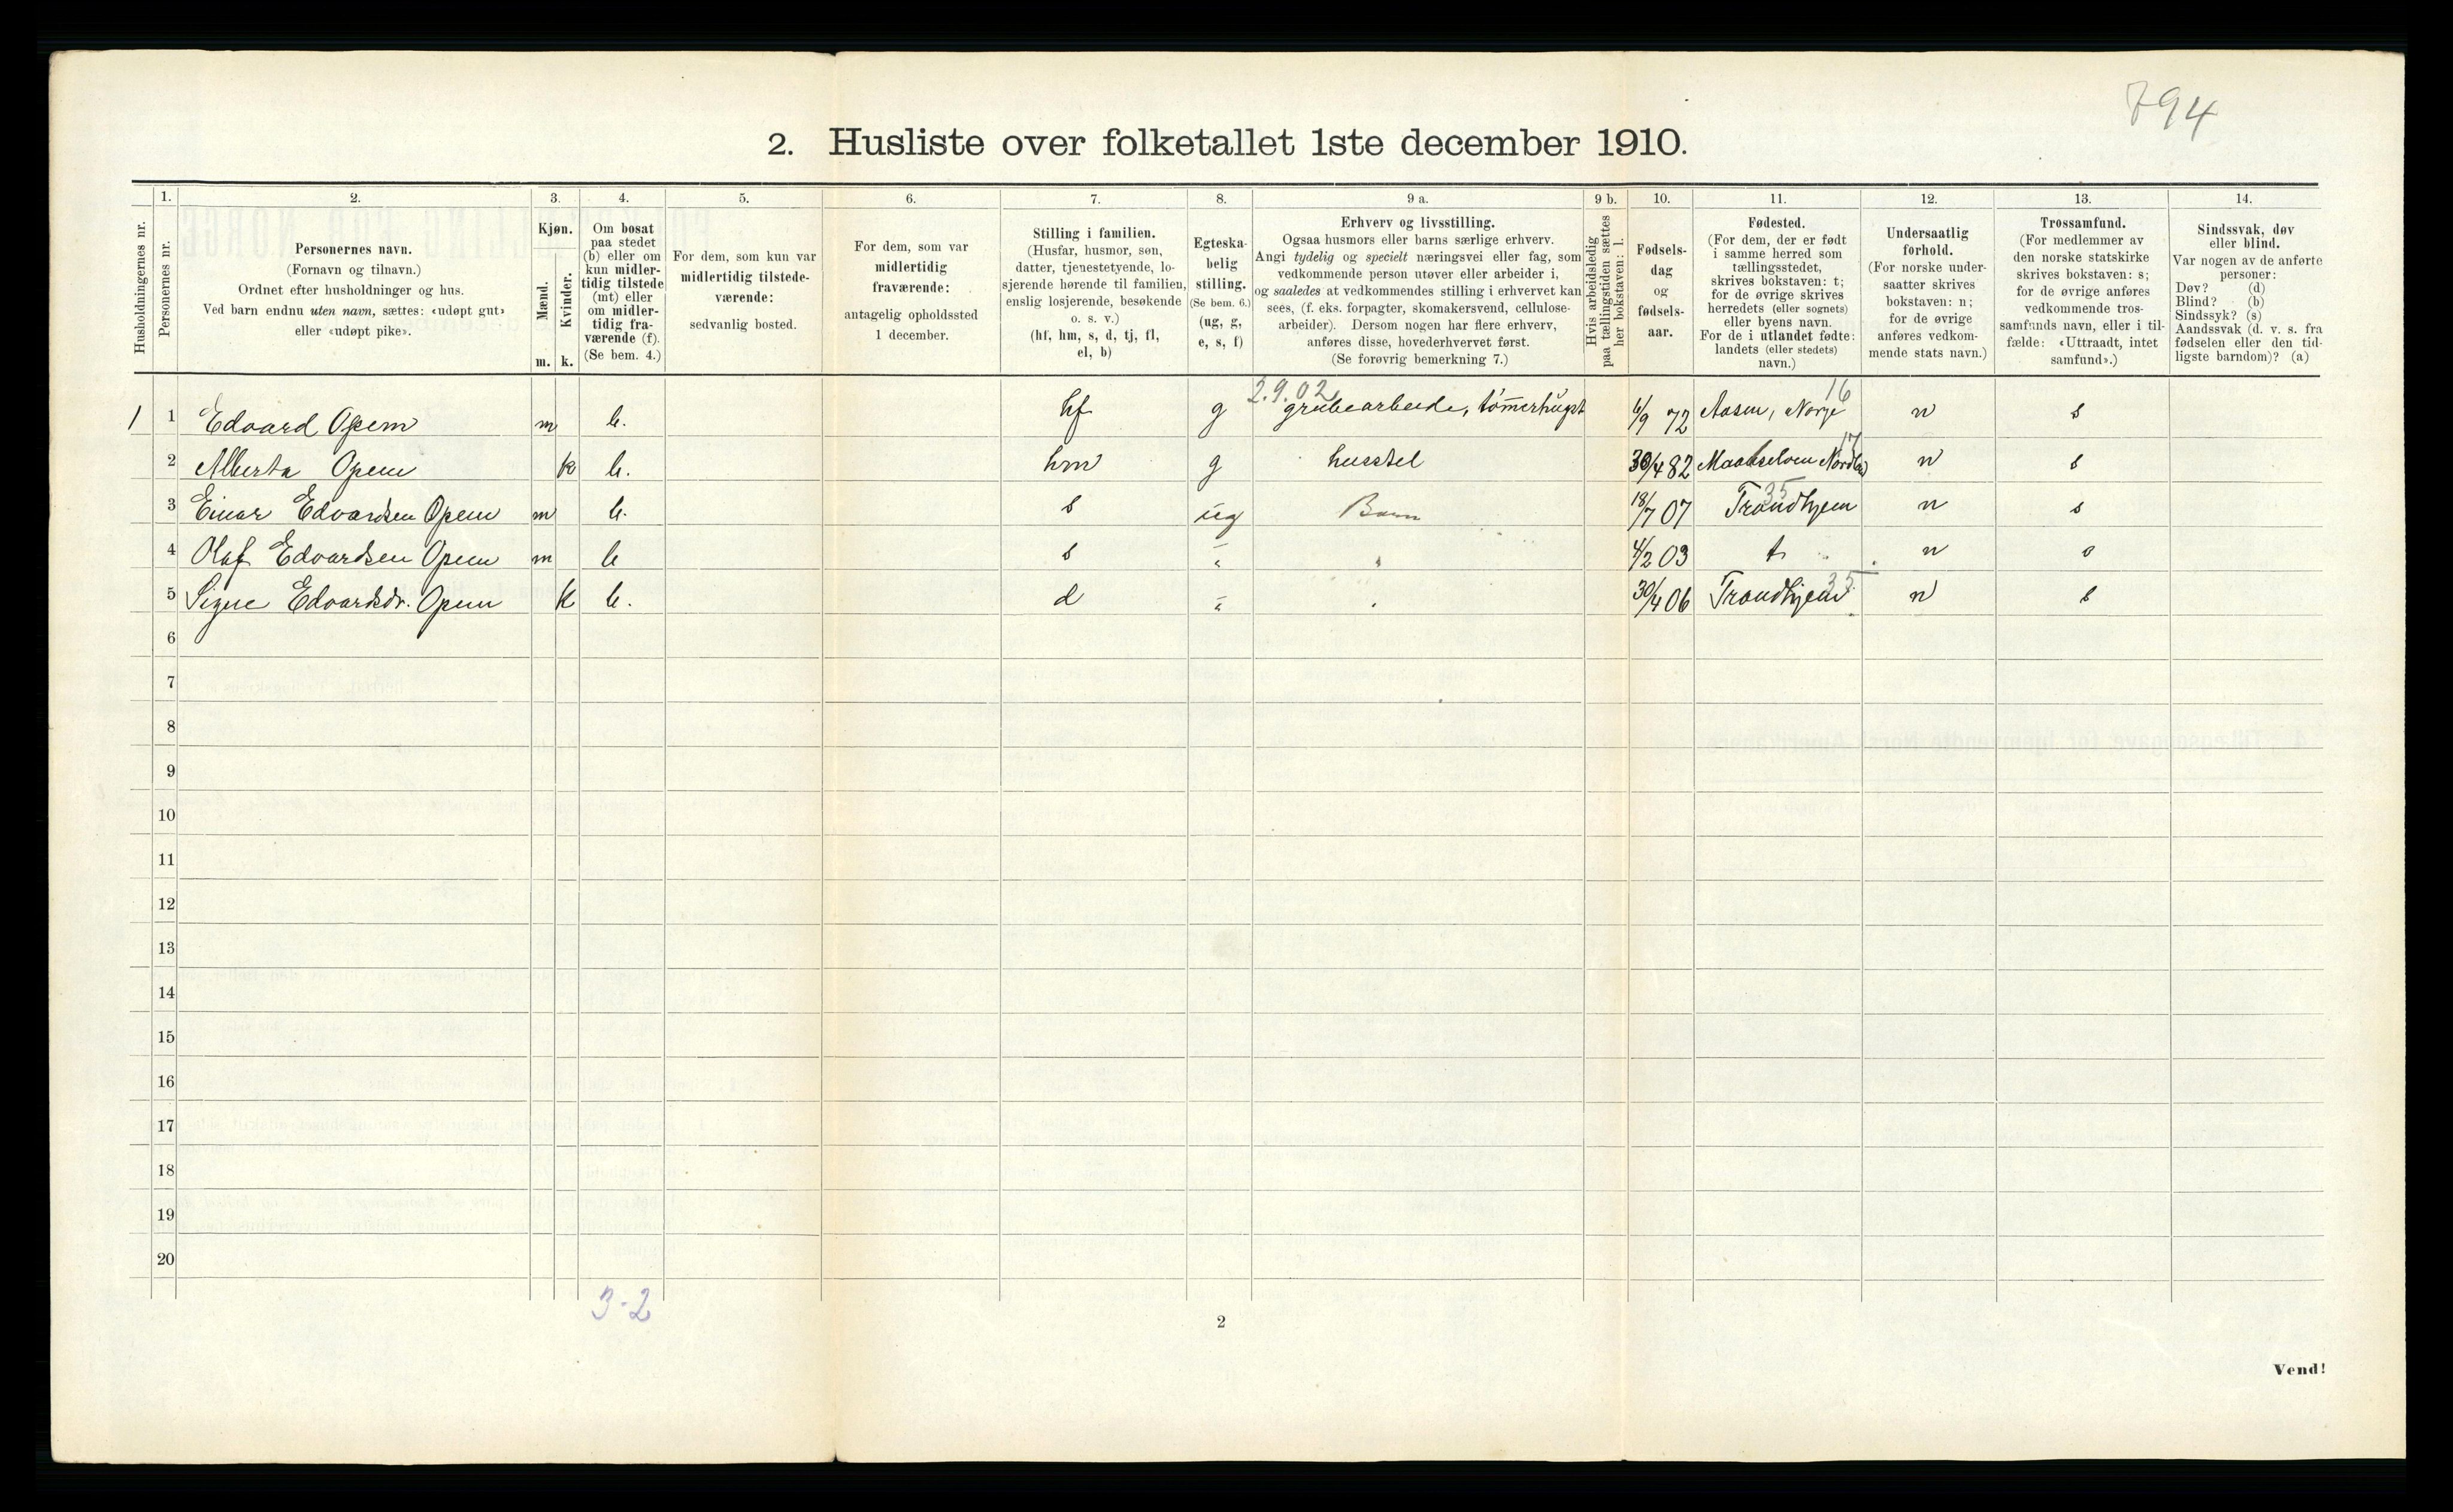 794
2. Husliste over folketallet 1ste december 1910.
1. 2. 3. 4. 5. 6. 7. 8. 9 a. 9 b. 10. 11. 12. 13. 14.
Husholdningernes nr.
Personernes nr.
Personernes navn.
(Fornavn og tilnavn.)
Ordnet efter husholdninger og hus.
Ved barn endnu uten navn, sættes: «udøpt gut»
eller «udøpt pike».
Kjøn.
Mænd.
Kvinder.
m. k.
Om bosat
paa stedet
(b) eller om
kun midler-
tidig tilstede
(mt) eller
om midler-
tidig fra-
værende (f).
(Se bem. 4.)
For dem, som kun var
midlertidig tilstede-
værende:
sedvanlig bosted.
For dem, som var
midlertidig
fraværende:
antagelig opholdssted
1 december.
Stilling i familien.
(Husfar, husmor, søn,
datter, tjenestetyende, lo-
sjerende hørende til familien,
enslig losjerende, besøkende
o. s. v.)
(hf, hm, s, d, tj, fl,
el, b)
Egteska-
belig
stilling.
(Se bem. 6.)
(ug, g,
e, s, f)
Erhverv og livsstilling.
Ogsaa husmors eller barns særlige erhverv.
Angi tydelig og specielt næringsvei eller fag, som
vedkommende person utøver eller arbeider i,
og saaledes at vedkommendes stilling i erhvervet kan
sees, (f. eks. forpagter, skomakersvend, cellulose-
arbeider). Dersom nogen har flere erhverv,
anføres disse, hovederhvervet først.
(Se forøvrig bemerkning 7.)
Hvis arbeidsledig
paa tællingstiden sættes
her bokstaven: l.
Fødsels-
dag
og
fødsels-
aar.
Fødested.
(For dem, der er født
i samme herred som
tællingsstedet,
skrives bokstaven: t;
for de øvrige skrives
herredets (eller sognets)
eller byens navn.
For de i utlandet fødte:
landets (eller stedets)
navn.)
Undersaatlig
forhold.
(For norske under-
saatter skrives
bokstaven: n;
for de øvrige
anføres vedkom-
mende stats navn.)
Trossamfund.
(For medlemmer av
den norske statskirke
skrives bokstaven: s;
for de øvrige anføres
vedkommende tros-
samfunds navn, eller i til-
fælde: «Uttraadt, intet
samfund».)
Sindssvak, døv
eller blind.
Var nogen av de anførte
personer:
Døv? (d)
Blind? (b)
Sindssyk? (s)
Aandssvak (d. v. s. fra
fødselen eller den tid-
ligste barndom)? (a)
2.9.02 16
1 1 Edvard Opem m b. hf g grubearbeide, tømerhugst 6/9 72 Aasen, Norge n s
17
2 Alberta Opem k b. hm g husstel 30/4 82 Maalselven Nordland n s
35
3 Einar Edvardsen Opem m b. s ug Barn 18/7 07 Trondhjem n s
4 Olaf Edvardsen Opem m b s " " 4/2 03 t. n s
35
5 Signe Edvardsdr. Opem k b. d " " 30/4 06 Trondhjem n s
6
7
8
9
10
11
12
13
14
15
16
17
18
19
20
3-2
2
Vend!